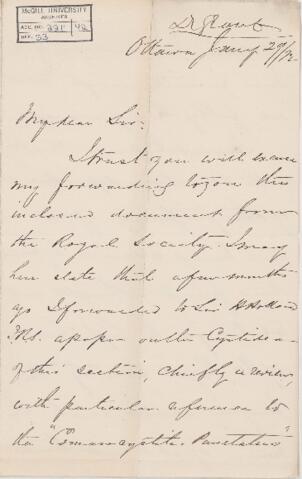 McGILL UNIVERSITY
ARCHIVES
ACC. 221 42
REF. 53
Dr Grant
Ottawa Jany 29/72
My dear Sir:
I trust you will excuse
my forwarding to you this
inclosed document from
the Royal Society. I may
here state that a few months
ago I forwarded to Sir H Holland
F.R.S. a paper on the Cystidea
of this section, chiefly a review,
with particular reference to
the "Comarocystites Punctatus"